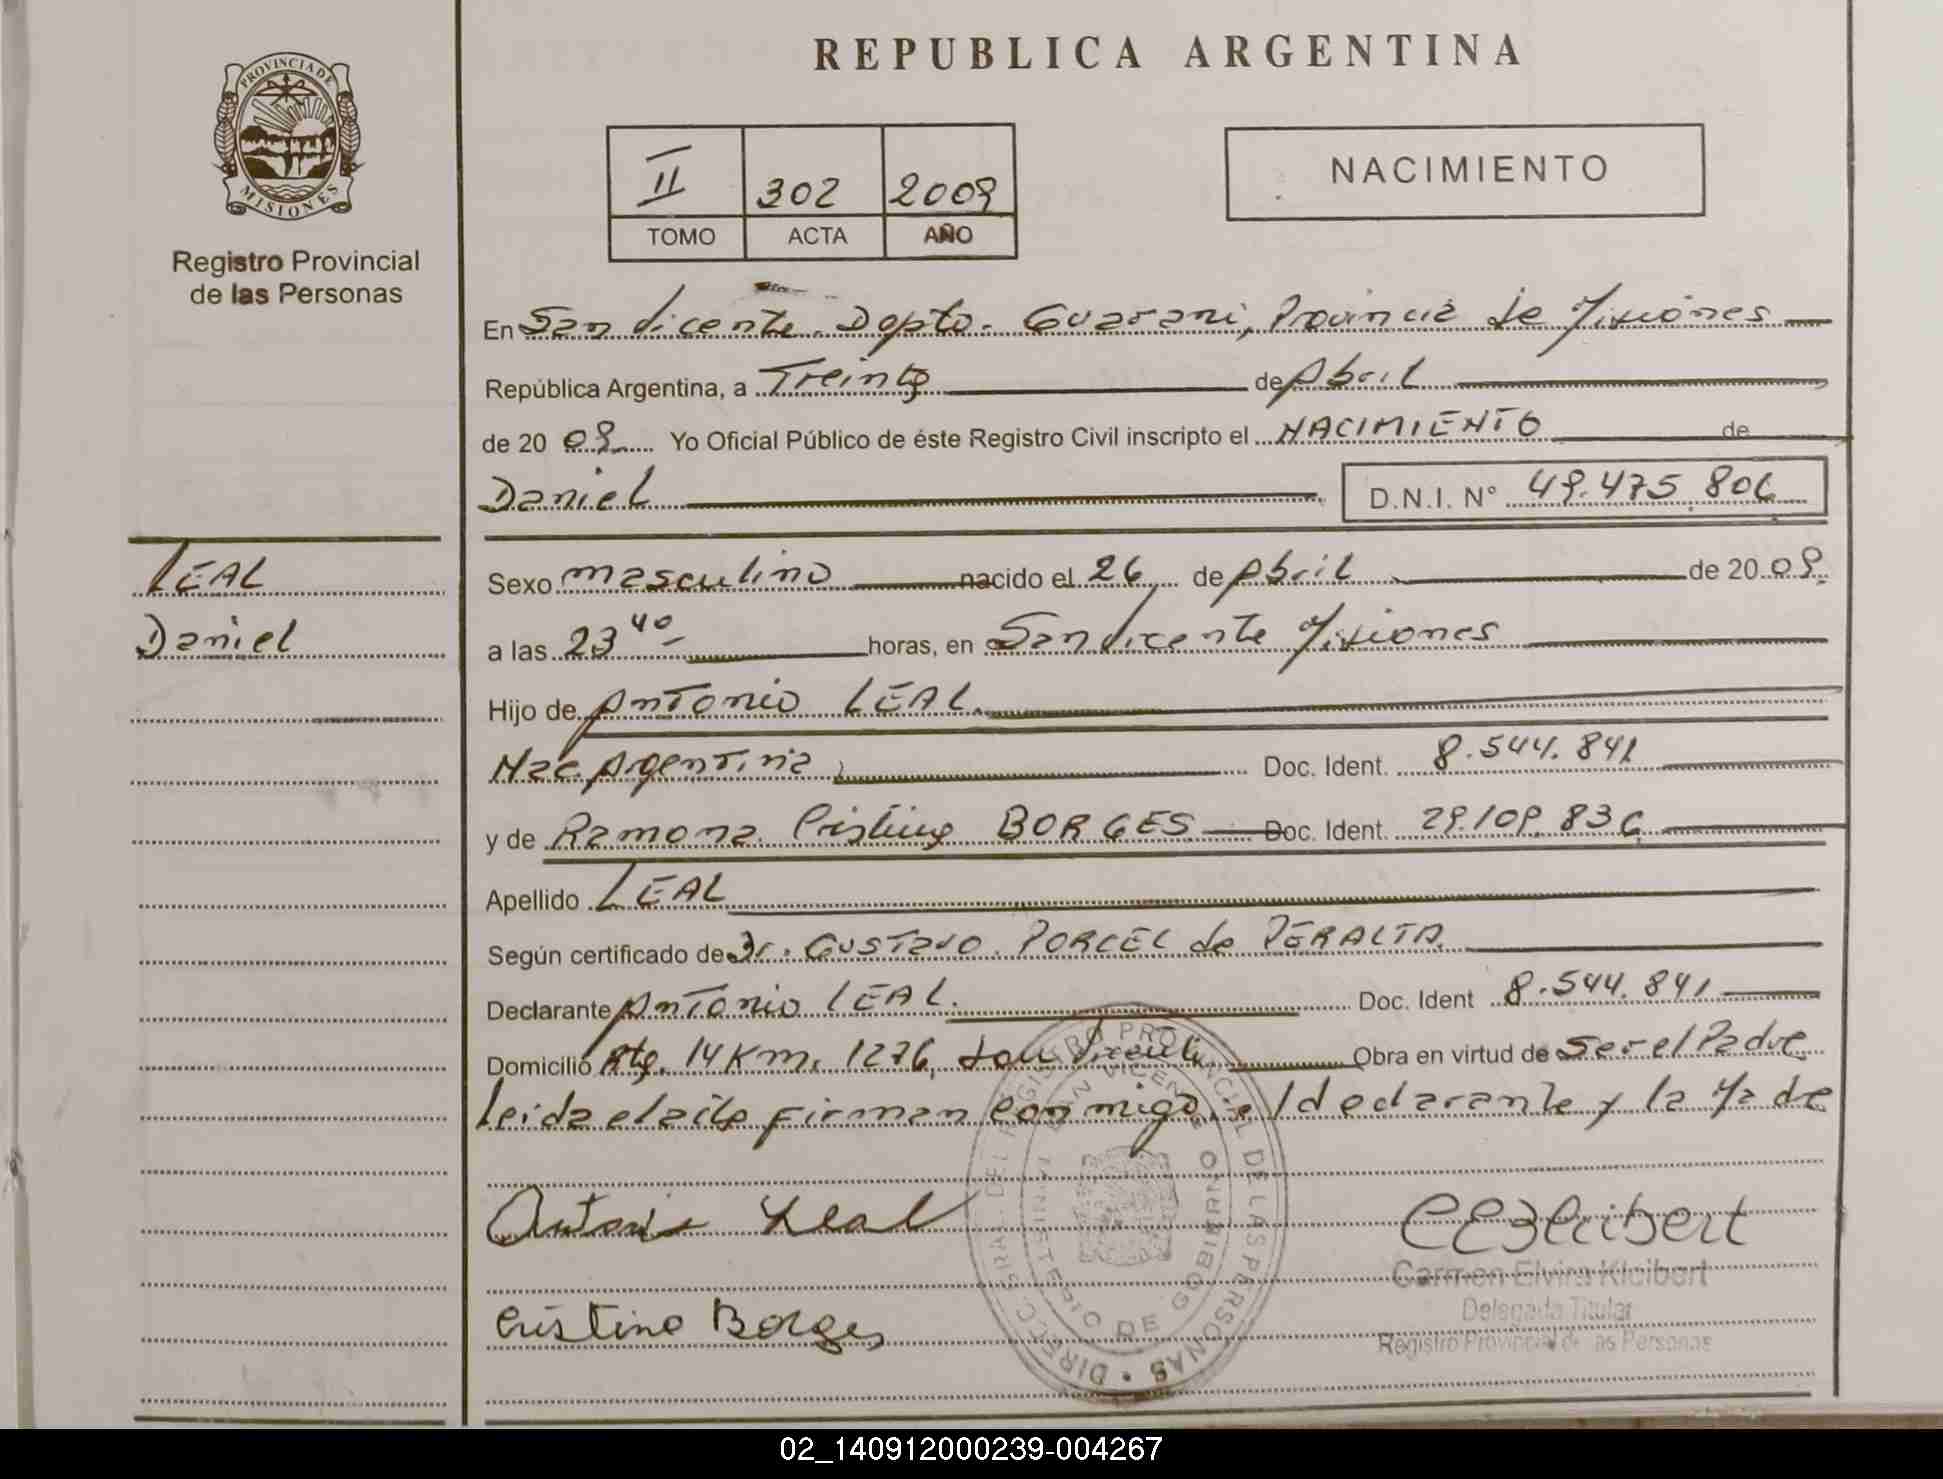 REPUBLICA ARGENTINA
PROVINCIA DE
MISIONES
Registro Provincial
de las Personas
II 302 2009
TOMO ACTA AÑO
NACIMIENTO
En San Vicente. Depto. Guarani, Provincia de Misiones
República Argentina, a Treinta de Abril
de 20 09 Yo Oficial Público de éste Registro Civil inscripto el NACIMIENTO de
Daniel D.N.I. N° 49.475.806
LEAL
Daniel
Sexo masculino nacido el 26 de Abril de 20 09.
a las 23 40 horas, en San Vicente Misiones
Hijo de Antonio LEAL.
Nac. Argentina Doc. Ident. 8.544.841
y de Ramona Cristina BORGES Doc. Ident. 29.109.836
Apellido LEAL
Según certificado de Dr. GUSTAVO PORCEL de PERALTA
Declarante Antonio LEAL. Doc. Ident 8.544.841
Domicilio Rta. 14 Km. 1276, San Vicente Obra en virtud de Ser el Padre
Leida el acta firman conmigo, el declarante y la Madre
Antonio Leal
CEKleibert
Carmen Elvira Kleibert
Delegada Titular
Registro Provincial de las Personas
Cristina Borges
DIRECC. GRAL. DEL REGISTRO PROVINCIAL DE LAS PERSONAS
SAN VICENTE
MINISTERIO DE GOBIERNO
02_140912000239-004267